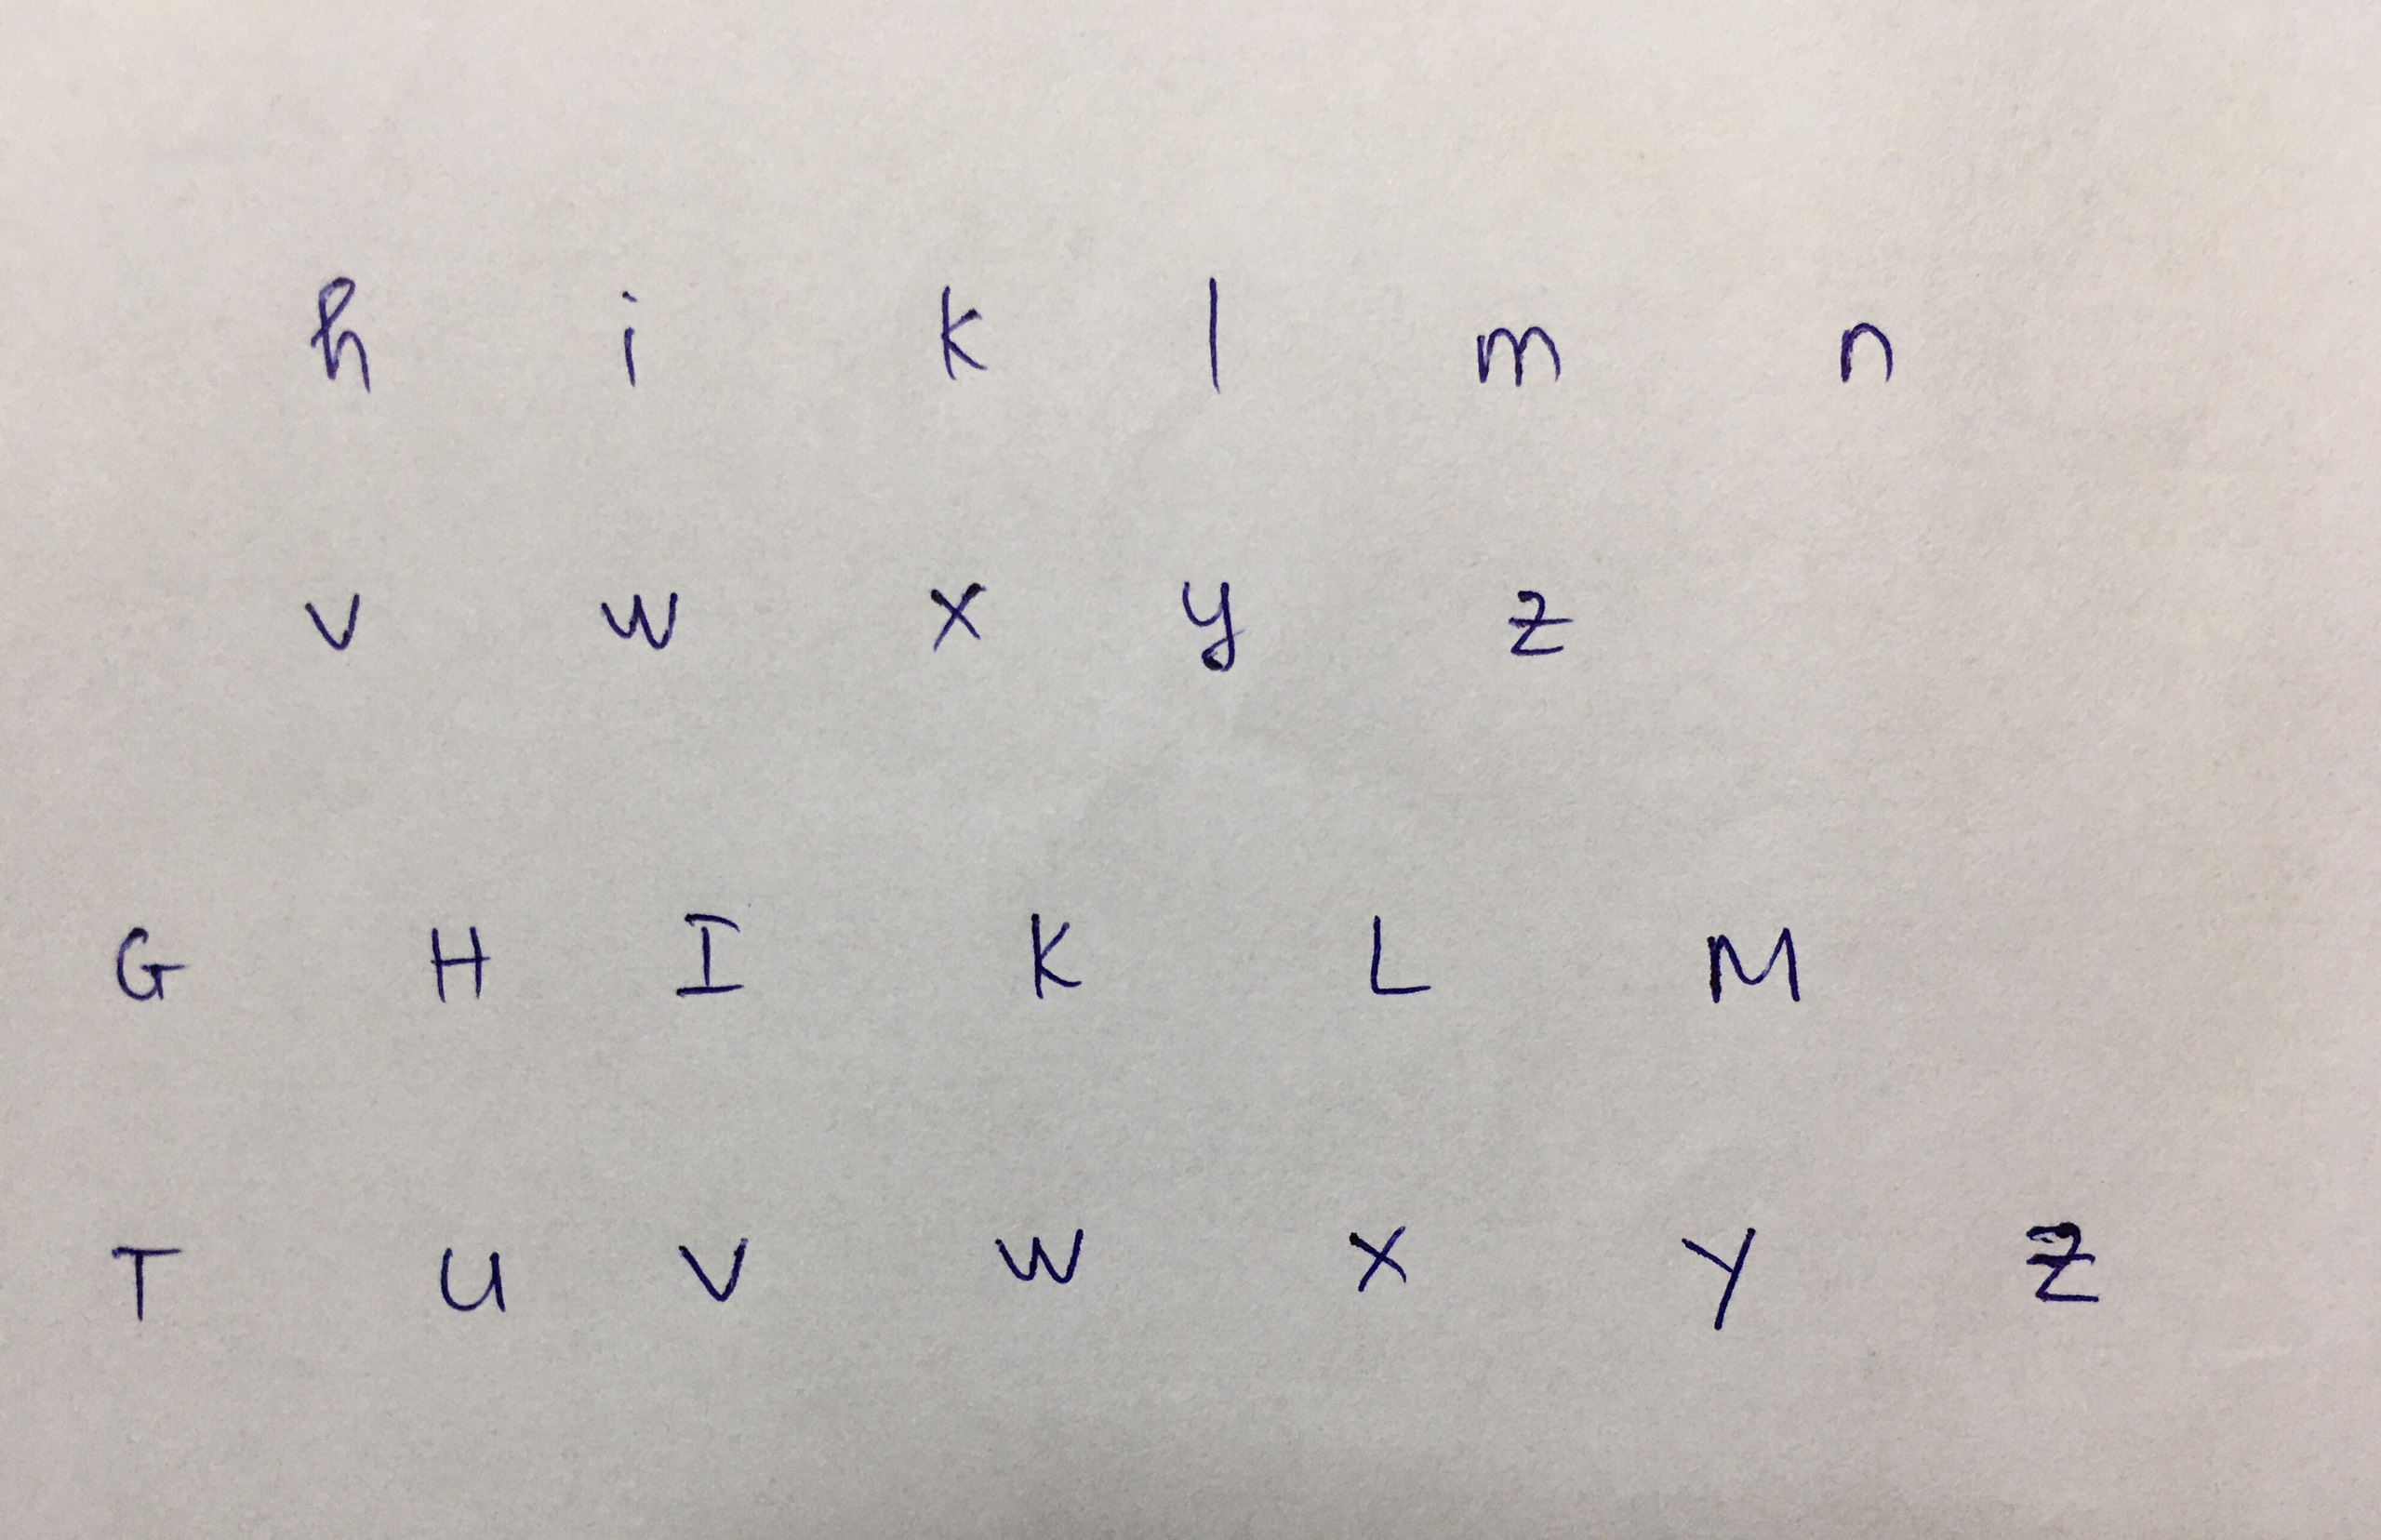 h i k l m n
v w x y z
G H I K L M
T U V W X Y Z